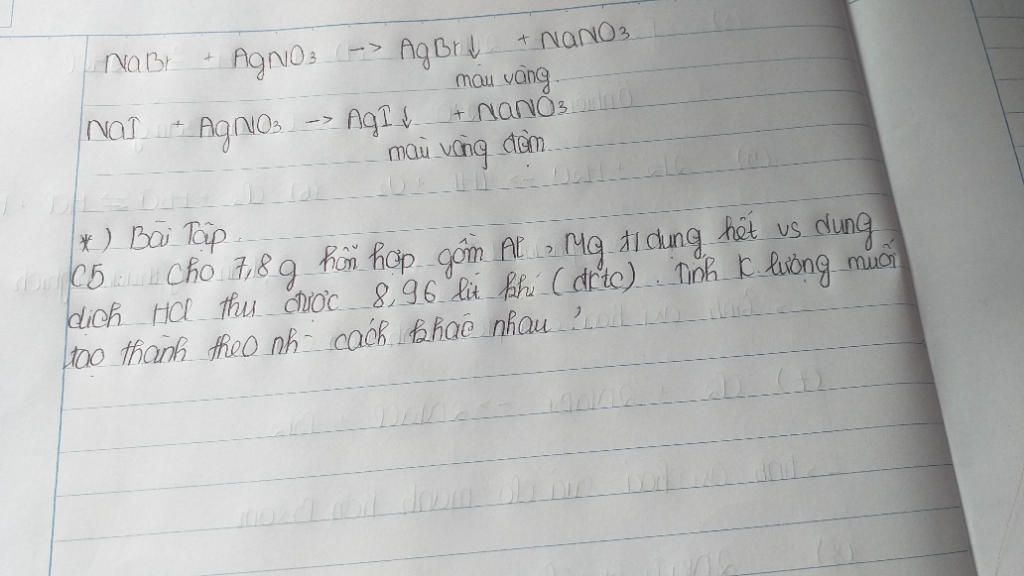 NaBr + AgNO₃ -> AgBr↓ + NaNO₃
màu vàng
NaI + AgNO₃ -> AgI↓ + NaNO₃
màu vàng đậm
*) Bài Tập
C5 Cho 7,8 g hỗn hợp gồm Al, Mg t/dụng hết vs dung
dịch HCl thu được 8,96 lít khí (đktc). Tính k.lượng muối
tạo thành theo nh~ cách khác nhau ?